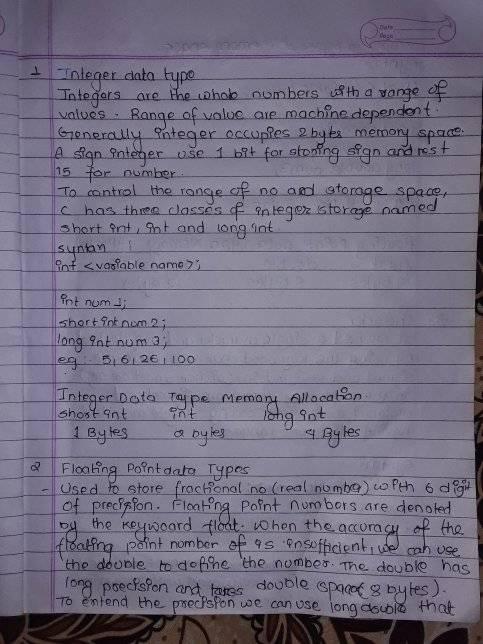 Date
Page
1 Integer data type
Integers are the whole numbers with a range of
values. Range of value are machine dependent.
Generally integer occupies 2 bytes memory space.
A sign integer use 1 bit for storing sign and rest
15 for number.
To control the range of no and storage space,
C has three classes of integer storage named
short int, int and long int
syntan
int <variable name>;
int num 1;
short int num 2;
long int num 3;
eg:- 5, 6, 26, 100
Integer Data Type Memory Allocation
short int int long int
1 Bytes 2 bytes 4 Bytes
2 Floating Point data Types
- Used to store fractional no (real number) with 6 digit
of precision. Floating Point numbers are denoted
by the keyword float. When the accuracy of the
floating point number of is insufficient, we can use
the double to define the number. The double has
long precision and takes double space (8 bytes).
To entend the precision we can use long double that